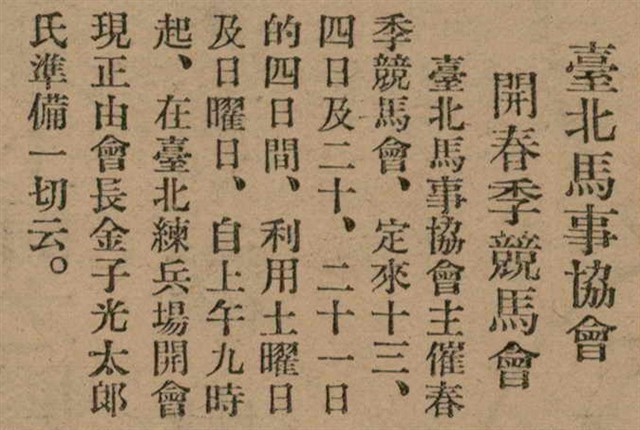 臺北馬事協會
開春季競馬會
臺北馬事協會主催春
季競馬會、定來十三、
四日及二十、二十一日
的四日間、利用土曜日
及日曜日、自上午九時
起、在臺北練兵場開會
現正由會長金子光太郎
氏準備一切云。